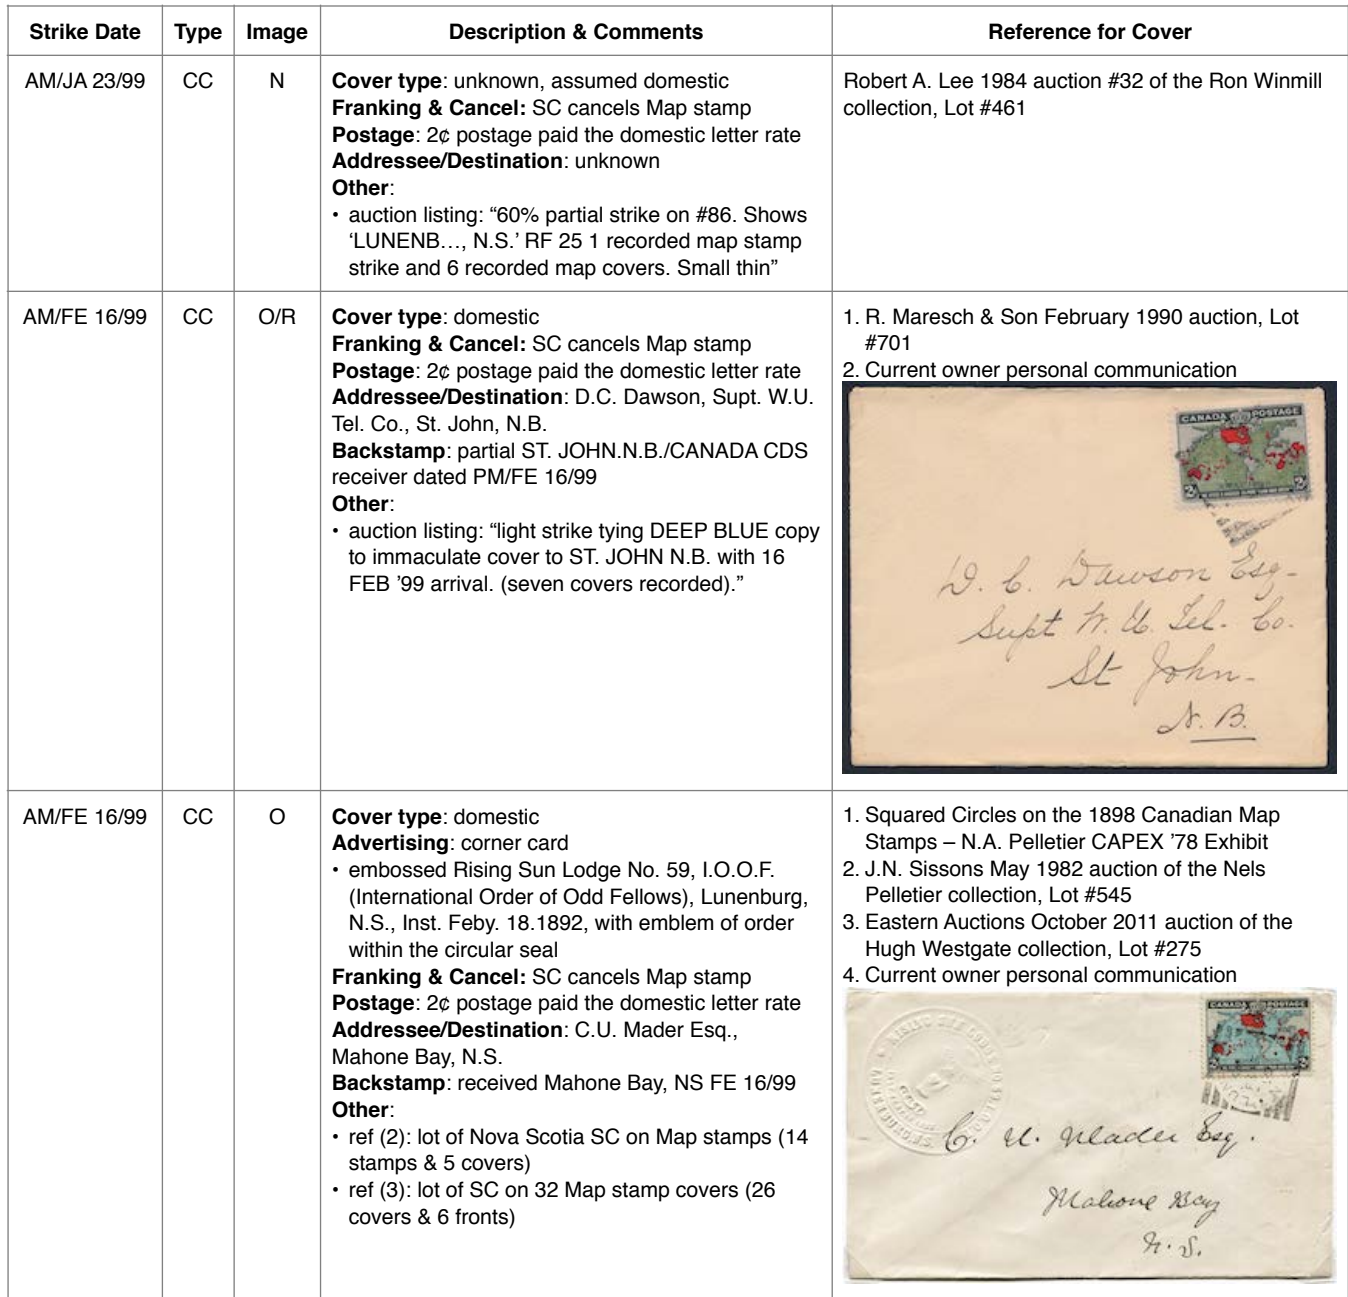 Strike Date Type Image Description & Comments Reference for Cover
AM/JA 23/99 CC N
Cover type: unknown, assumed domestic
Franking & Cancel: SC cancels Map stamp
Postage: 2¢ postage paid the domestic letter rate
Addressee/Destination: unknown
Other:
• auction listing: “60% partial strike on #86. Shows
‘LUNENB…, N.S.’ RF 25 1 recorded map stamp
strike and 6 recorded map covers. Small thin”
Robert A. Lee 1984 auction #32 of the Ron Winmill
collection, Lot #461
AM/FE 16/99 CC O/R
Cover type: domestic
Franking & Cancel: SC cancels Map stamp
Postage: 2¢ postage paid the domestic letter rate
Addressee/Destination: D.C. Dawson, Supt. W.U.
Tel. Co., St. John, N.B.
Backstamp: partial ST. JOHN.N.B./CANADA CDS
receiver dated PM/FE 16/99
Other:
• auction listing: “light strike tying DEEP BLUE copy
to immaculate cover to ST. JOHN N.B. with 16
FEB ’99 arrival. (seven covers recorded).”
1. R. Maresch & Son February 1990 auction, Lot
#701
2. Current owner personal communication
CANADA POSTAGE
2 2
D. C. Dawson Esq-
Supt W. U. Tel. Co.
St John-
N. B.
AM/FE 16/99 CC O
Cover type: domestic
Advertising: corner card
• embossed Rising Sun Lodge No. 59, I.O.O.F.
(International Order of Odd Fellows), Lunenburg,
N.S., Inst. Feby. 18.1892, with emblem of order
within the circular seal
Franking & Cancel: SC cancels Map stamp
Postage: 2¢ postage paid the domestic letter rate
Addressee/Destination: C.U. Mader Esq.,
Mahone Bay, N.S.
Backstamp: received Mahone Bay, NS FE 16/99
Other:
• ref (2): lot of Nova Scotia SC on Map stamps (14
stamps & 5 covers)
• ref (3): lot of SC on 32 Map stamp covers (26
covers & 6 fronts)
1. Squared Circles on the 1898 Canadian Map
Stamps – N.A. Pelletier CAPEX ’78 Exhibit
2. J.N. Sissons May 1982 auction of the Nels
Pelletier collection, Lot #545
3. Eastern Auctions October 2011 auction of the
Hugh Westgate collection, Lot #275
4. Current owner personal communication
CANADA POSTAGE
2 2
RISING SUN LODGE NO 59 I.O.O.F. LUNENBURG, N.S.
C. U. Mader Esq.
Mahone Bay
N. S.